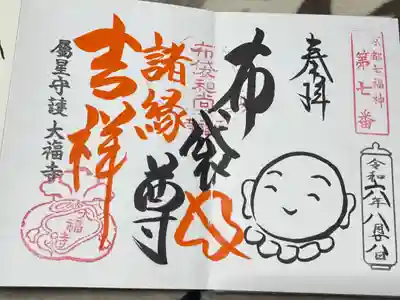 京都七福神
第七番
奉拝
令和六年八月八日
布袋尊
布袋和尚
諸縁
吉祥
属星守護 大福寺
大福